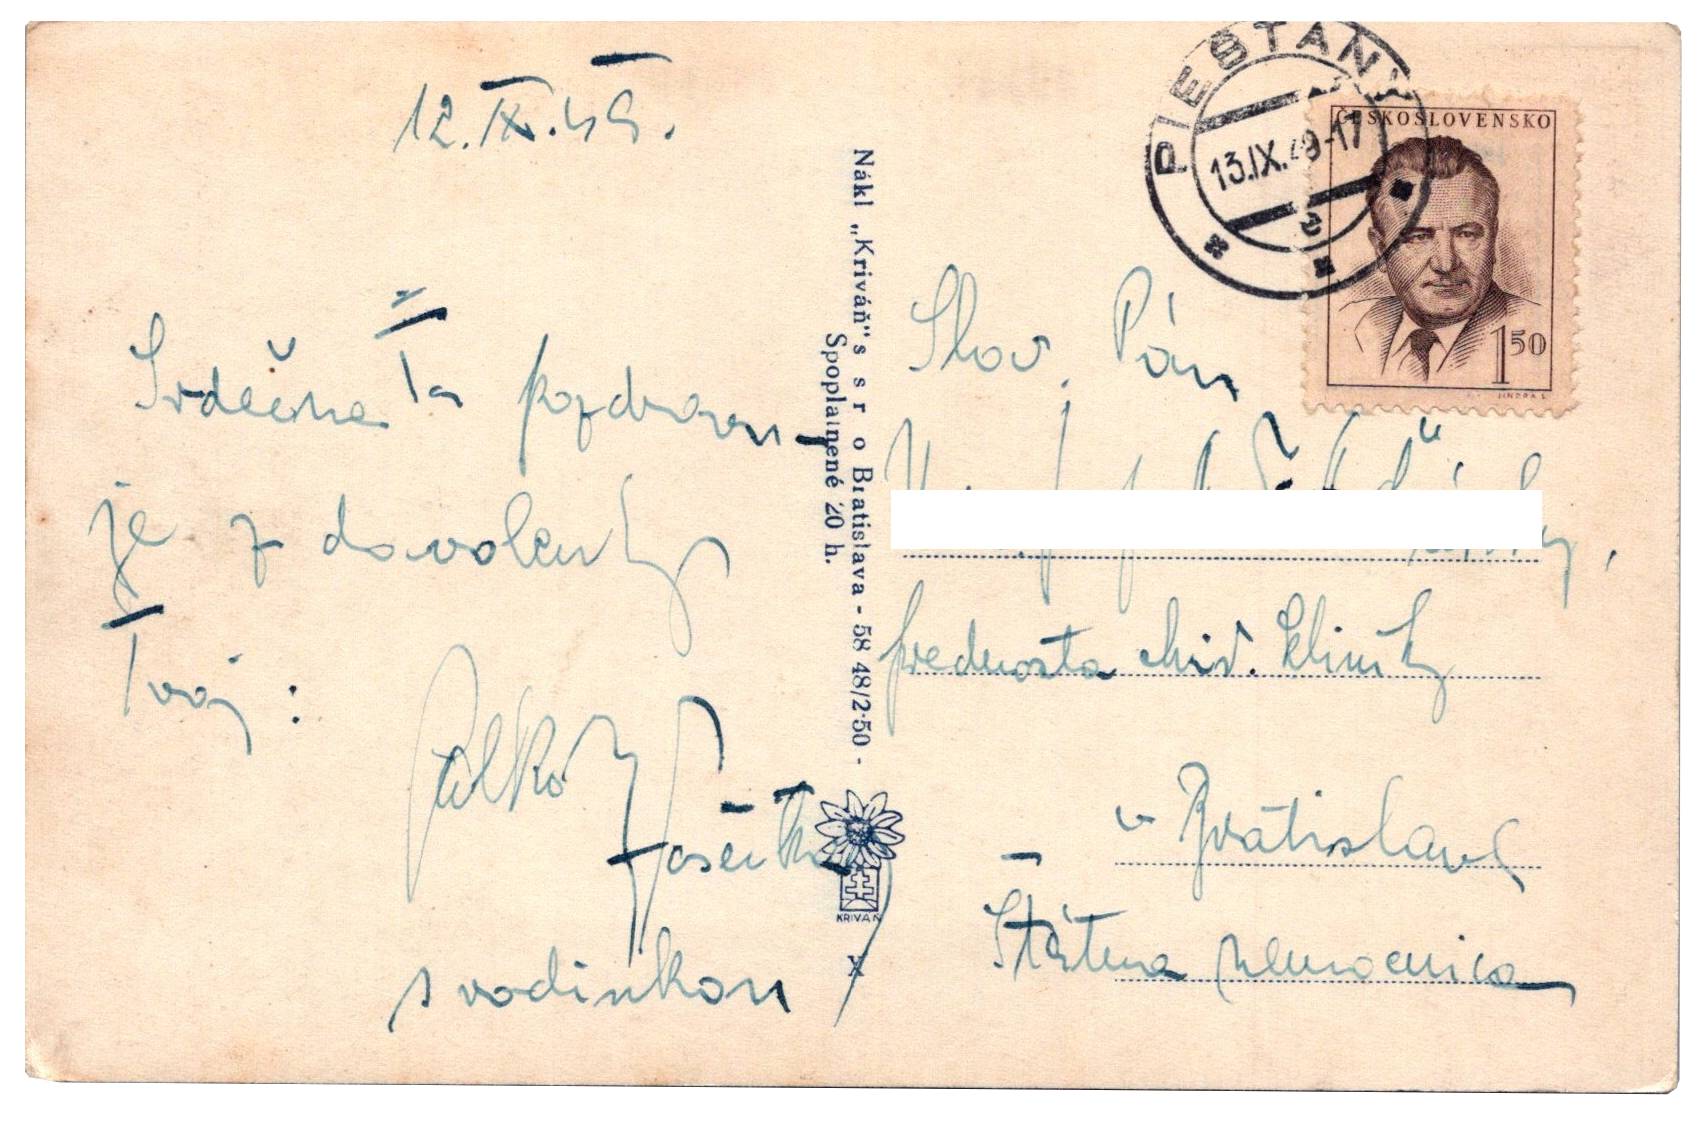 12. IX. 49.
Srdečne Ťa pozdravu-
je z dovolenky
Tvoj:
Palko
s rodinkou
Nákl „Kriváň" s s r o Bratislava - 58 48/2·50 -
Spoplatnené 20 h.
KRIVÁŇ
X
PIEŠŤANY
13.IX.49-17
2
ČESKOSLOVENSKO
1 50
JINDRA S.
Slov. Pán
prednosta chir. kliniky
v Bratislave
Štátna nemocnica